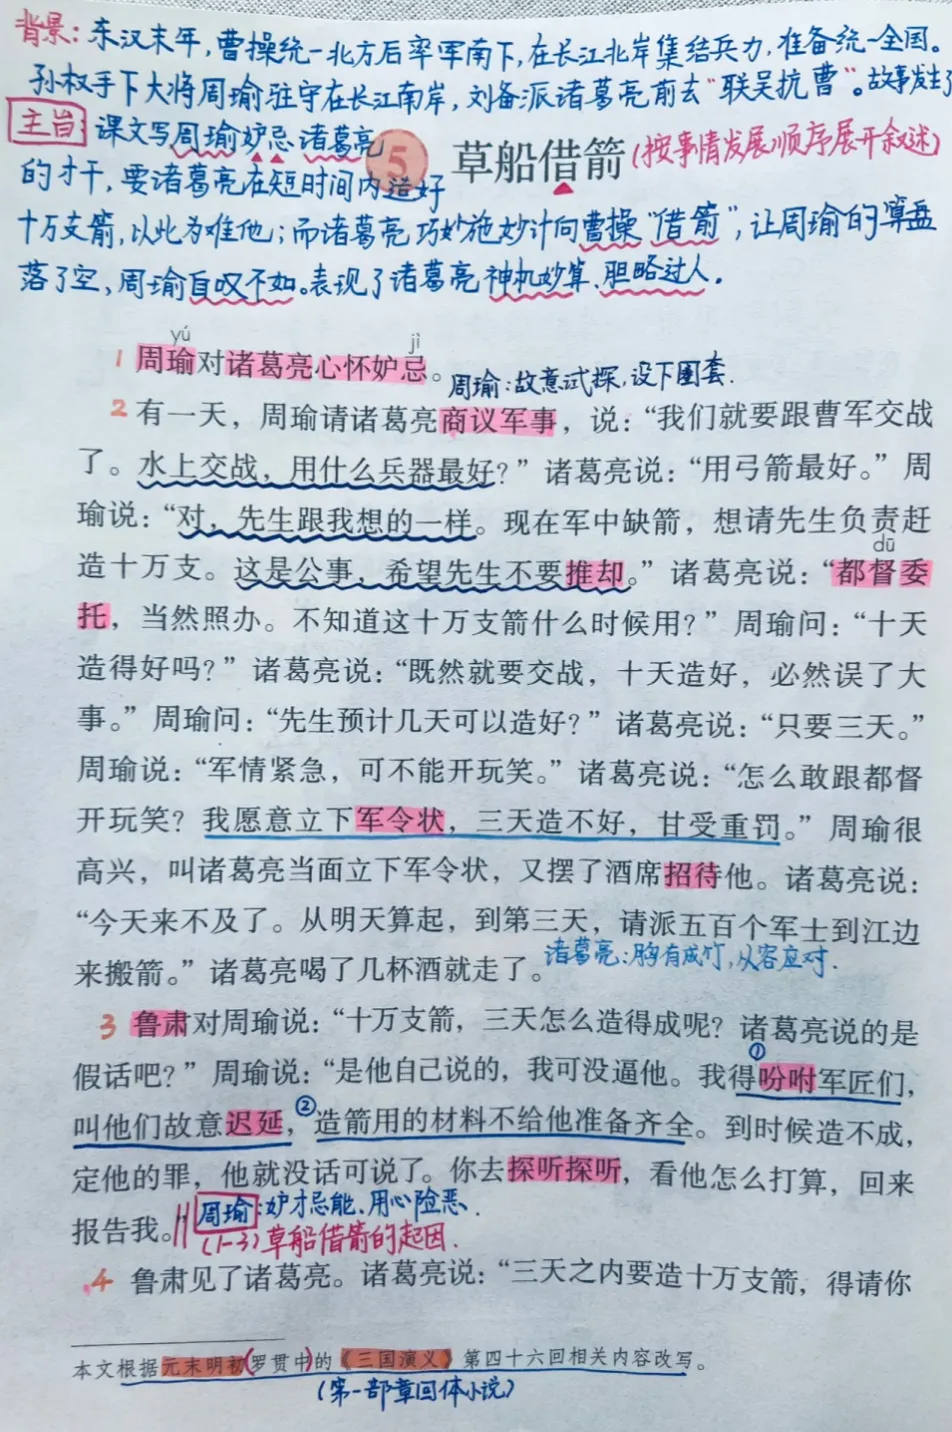 背景：东汉末年，曹操统一北方后率军南下，在长江北岸集结兵力，准备统一全国。
孙权手下大将周瑜驻守在长江南岸，刘备派诸葛亮前去“联吴抗曹”。故事发生了
主旨：课文写周瑜妒忌诸葛亮
5 草船借箭（按事情发展顺序展开叙述）
的才干，要诸葛亮在短时间内造好
十万支箭，以此为难他；而诸葛亮巧妙施妙计向曹操“借箭”，让周瑜的算盘
落了空，周瑜自叹不如。表现了诸葛亮神机妙算、胆略过人。
yú jì
1 周瑜对诸葛亮心怀妒忌。
周瑜：故意试探，设下圈套.
2 有一天，周瑜请诸葛亮商议军事，说：“我们就要跟曹军交战
了。水上交战，用什么兵器最好？”诸葛亮说：“用弓箭最好。”周
瑜说：“对，先生跟我想的一样。现在军中缺箭，想请先生负责赶
dū
造十万支。这是公事，希望先生不要推却。”诸葛亮说：“都督委
托，当然照办。不知道这十万支箭什么时候用？”周瑜问：“十天
造得好吗？”诸葛亮说：“既然就要交战，十天造好，必然误了大
事。”周瑜问：“先生预计几天可以造好？”诸葛亮说：“只要三天。”
周瑜说：“军情紧急，可不能开玩笑。”诸葛亮说：“怎么敢跟都督
开玩笑？我愿意立下军令状，三天造不好，甘受重罚。”周瑜很
高兴，叫诸葛亮当面立下军令状，又摆了酒席招待他。诸葛亮说：
“今天来不及了。从明天算起，到第三天，请派五百个军士到江边
来搬箭。”诸葛亮喝了几杯酒就走了。
诸葛亮：胸有成竹，从容应对.
3 鲁肃对周瑜说：“十万支箭，三天怎么造得成呢？诸葛亮说的是
假话吧？”周瑜说：“是他自己说的，我可没逼他。我得①吩咐军匠们，
叫他们故意迟延，②造箭用的材料不给他准备齐全。到时候造不成，
定他的罪，他就没话可说了。你去探听探听，看他怎么打算，回来
报告我。”
周瑜：妒才忌能、用心险恶.
(1-3)草船借箭的起因.
4 鲁肃见了诸葛亮。诸葛亮说：“三天之内要造十万支箭，得请你
本文根据元末明初(罗贯中)的《三国演义》第四十六回相关内容改写。
(第一部章回体小说)